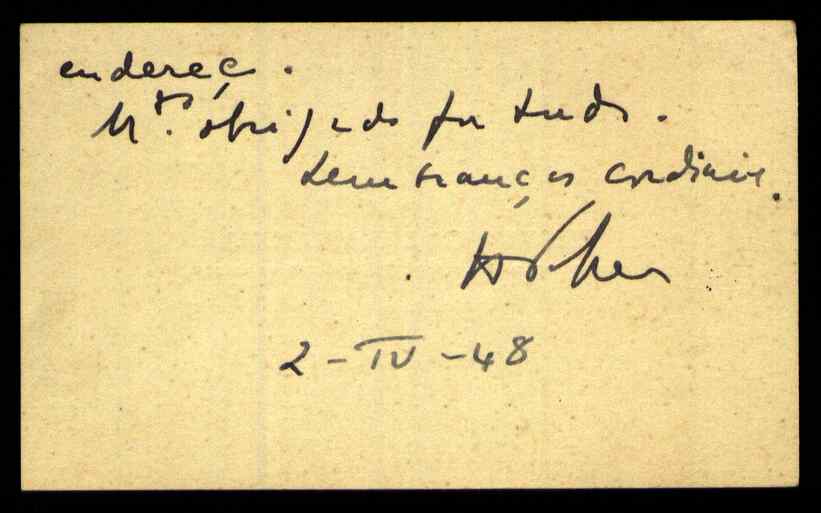 endereço.
Mto. obrigado por tudo.
Lembranças cordiais.
2-IV-48